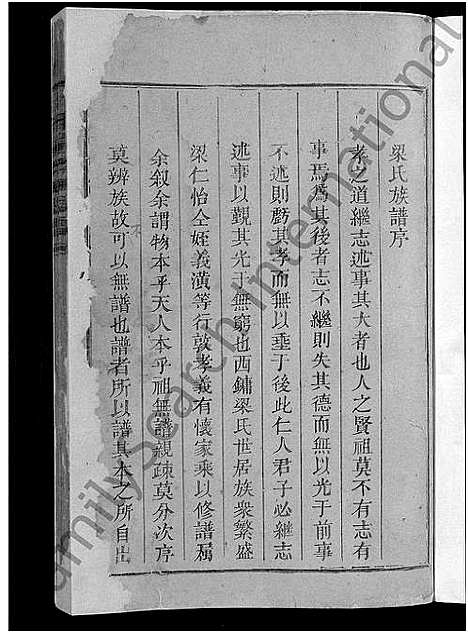 梁氏族譜序
孝之道繼志述事其大者也人之賢祖莫不有志有
事焉為其後者志不繼則失其德而無以光于前事
不述則虧其孝而無以垂于後此仁人君子必繼志
述事以覲其光于無窮也西鏞梁氏世居族衆繁盛
梁仁怡仝姪義潢等行敦孝義有懷家乘以修譜屬
余叙余謂物本乎天人本乎祖無譜親疎莫分次序
莫辨族故可以無譜也譜者所以譜其本之所自出
FamilySearch International